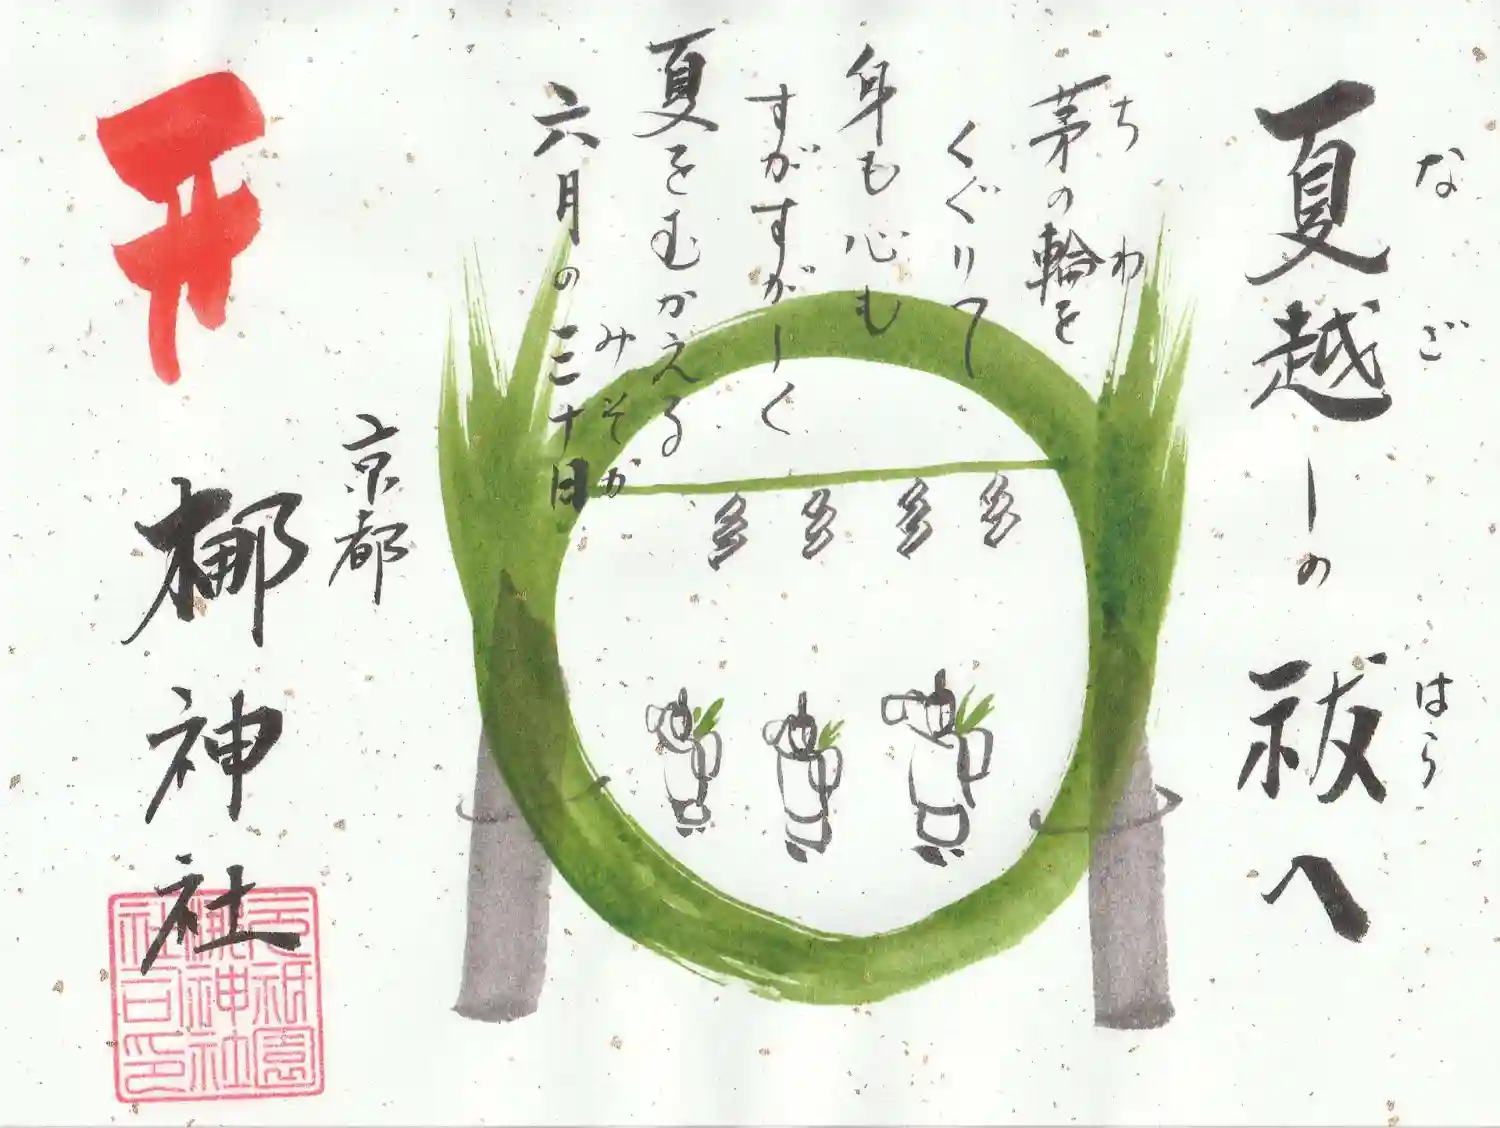 なご はら
夏越しの祓へ
ちわ
茅の輪を
くぐりて
身も心も
すがすがしく
夏をむかえる
みそか
六月の三十日
京都
梛神社
元祇園
梛神社
社司印